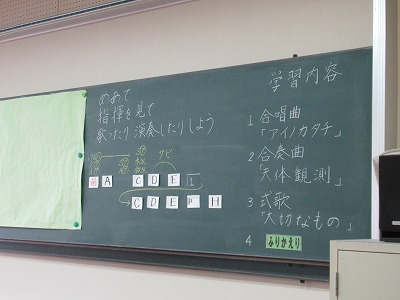 めあて
指揮を見て
歌ったり演奏したりしよう
サビ
前 A C D E 1
C D E F H
学習内容
1 合唱曲
「アイノカタチ」
2 合奏曲
「天体観測」
3 式歌
「大切なもの」
4 ふりかえり